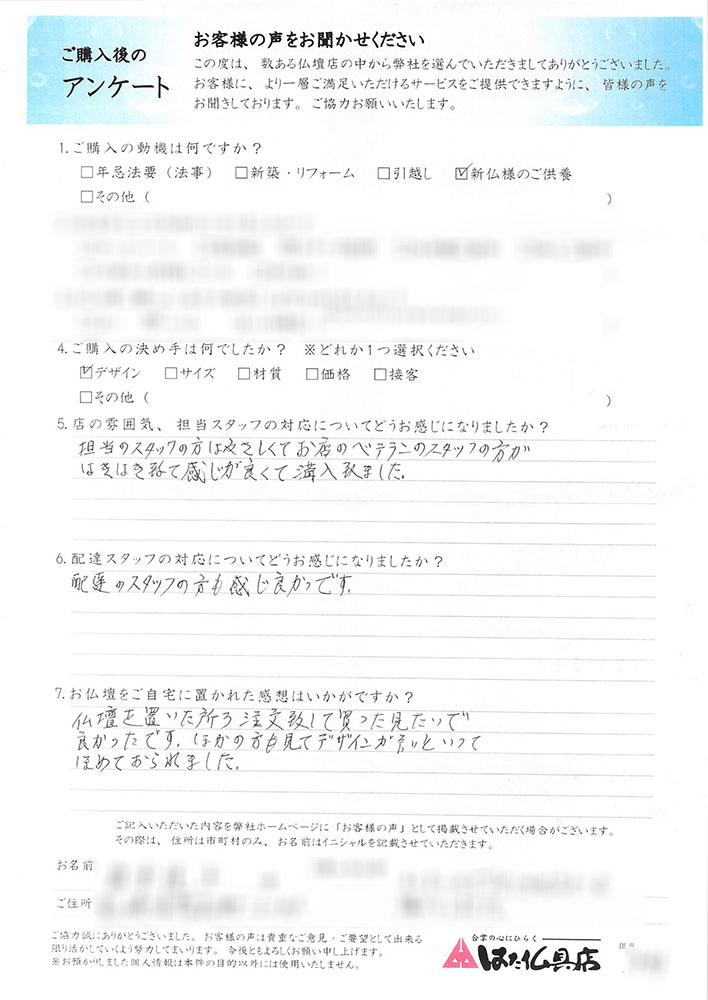 ご購入後の
アンケート
お客様の声をお聞かせください
この度は、数ある仏壇店の中から弊社を選んでいただきましてありがとうございました。
お客様に、より一層ご満足いただけるサービスをご提供できますように、皆様の声を
お聞きしております。ご協力お願いいたします。
1.ご購入の動機は何ですか？
□年忌法要（法事） □新築・リフォーム □引越し ☑新仏様のご供養
□その他（ ）
4.ご購入の決め手は何でしたか？ ※どれか1つ選択ください
☑デザイン □サイズ □材質 □価格 □接客
□その他（ ）
5.店の雰囲気、担当スタッフの対応についてどうお感じになりましたか？
担当のスタッフの方はやさしくてお店のベテランのスタッフの方が
はきはき致て感じが良くて購入致ました。
6.配達スタッフの対応についてどうお感じになりましたか？
配達のスタッフの方も感じ良かつです。
7.お仏壇をご自宅に置かれた感想はいかがですか？
仏壇を置いた所ろ注文致して買った見たいで
良かったです。ほかの方も見てデザインが良いといって
ほめておられました。
ご記入いただいた内容を弊社ホームページに「お客様の声」として掲載させていただく場合がございます。
その際は、住所は市町村のみ、お名前はイニシャルを記載させていただきます。
お名前
ご住所
ご協力誠にありがとうございました。お客様の声は貴重なご意見・ご要望として出来る
限り活かしていくよう努力してまいります。今後ともよろしくお願い申し上げます。
※お預かりしました個人情報は本件の目的以外には使用いたしません。
合掌の心にひらく
はた仏具店
担当